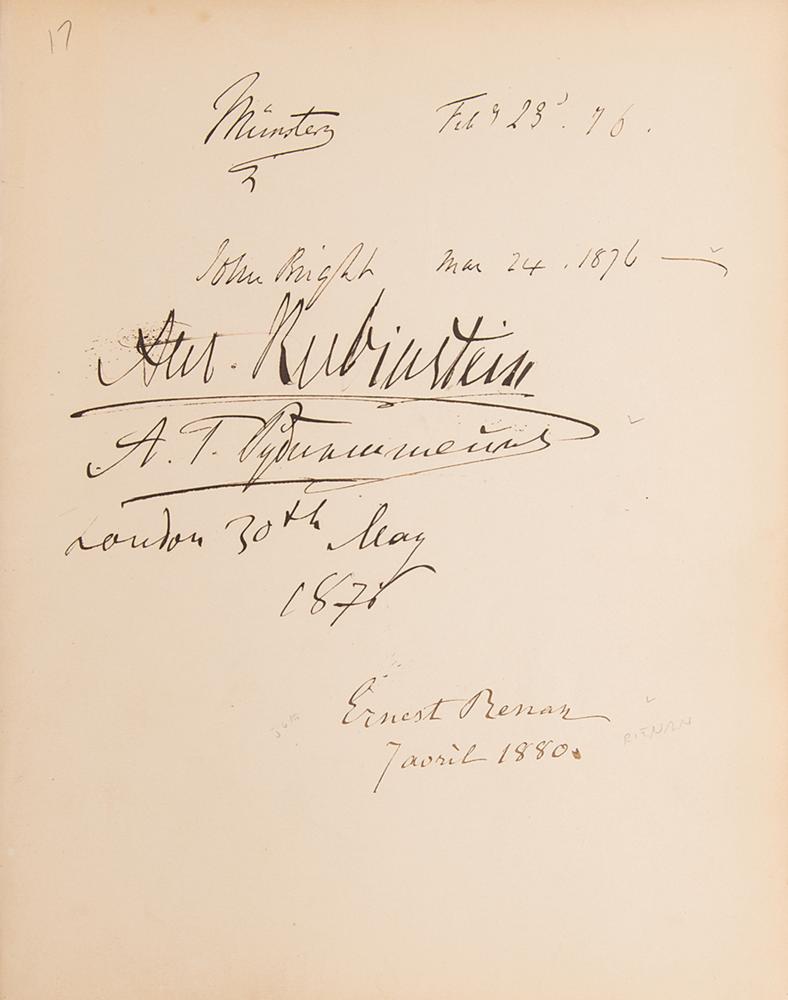 17
Münster Feby 23d. 76.
John Bright Mar 24. 1876
Ant. Rubinstein
А. Г. Рубинштейнъ
London 30th May
1876
Ernest Renan
7 avril 1880.
RENAN